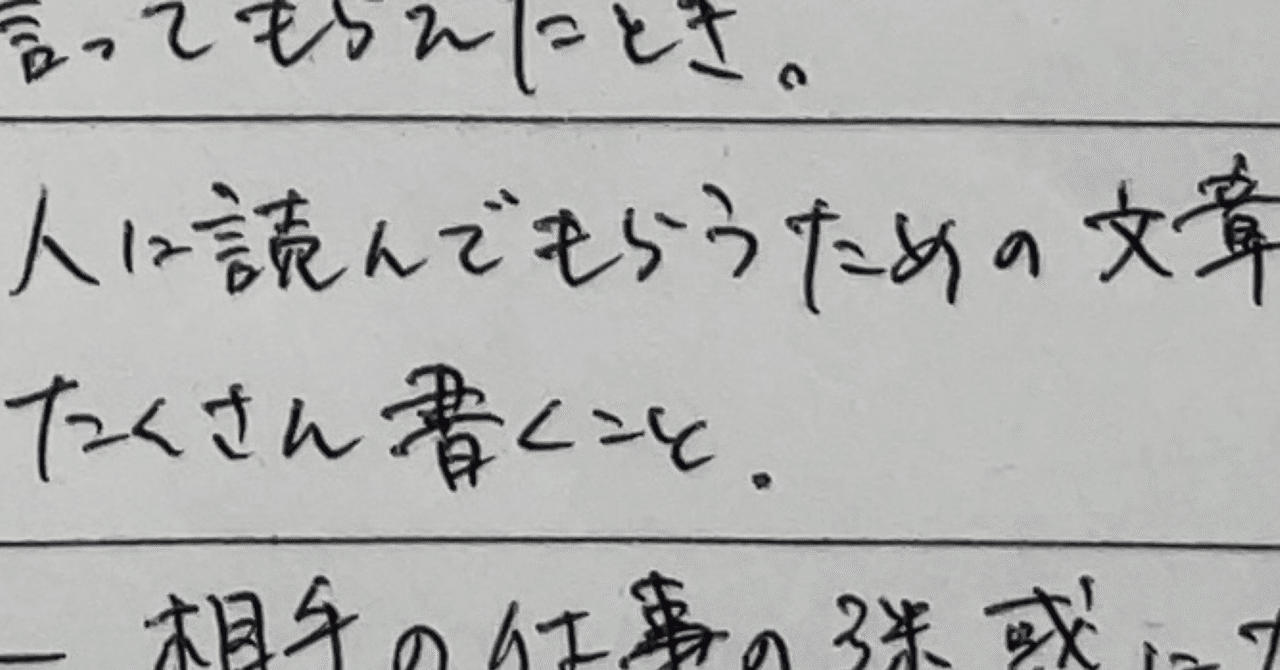 言ってもらえたとき。
人に読んでもらうための文章
たくさん書くこと.
相手の仕事の迷惑に